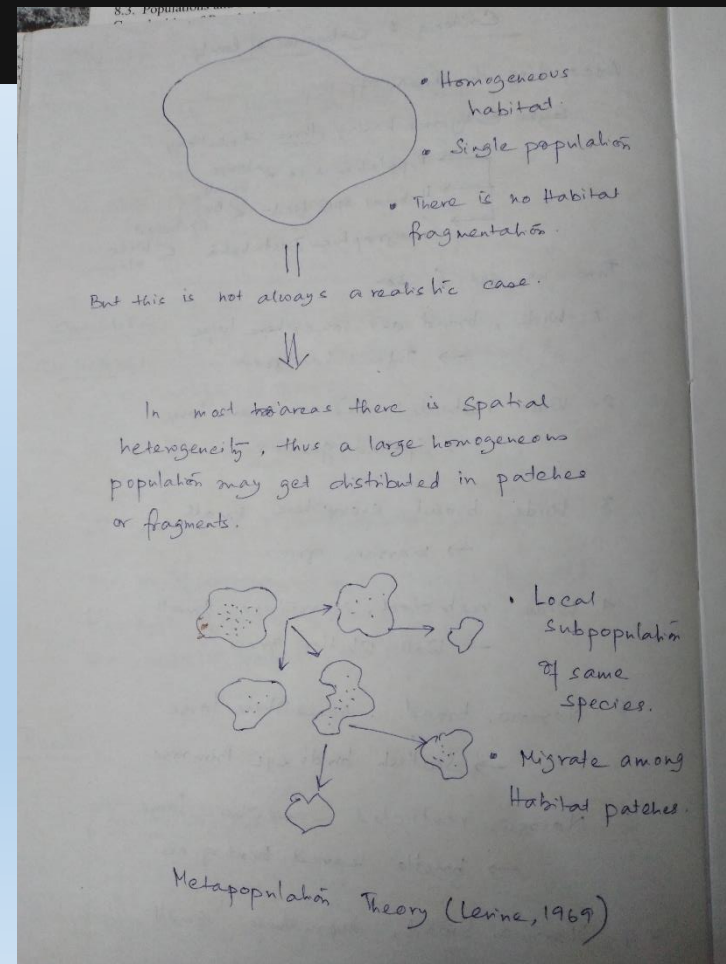 8.3. Populations
• Homogeneous
habitat.
• Single population
• There is no Habitat
fragmentation.
But this is not always a realistic case.
In most areas there is Spatial
heterogeneity, thus a large homogeneous
population may get distributed in patches
or fragments.
• Local
Subpopulation
of same
species.
• Migrate among
Habitat patches.
Metapopulation Theory (Levine, 1969)